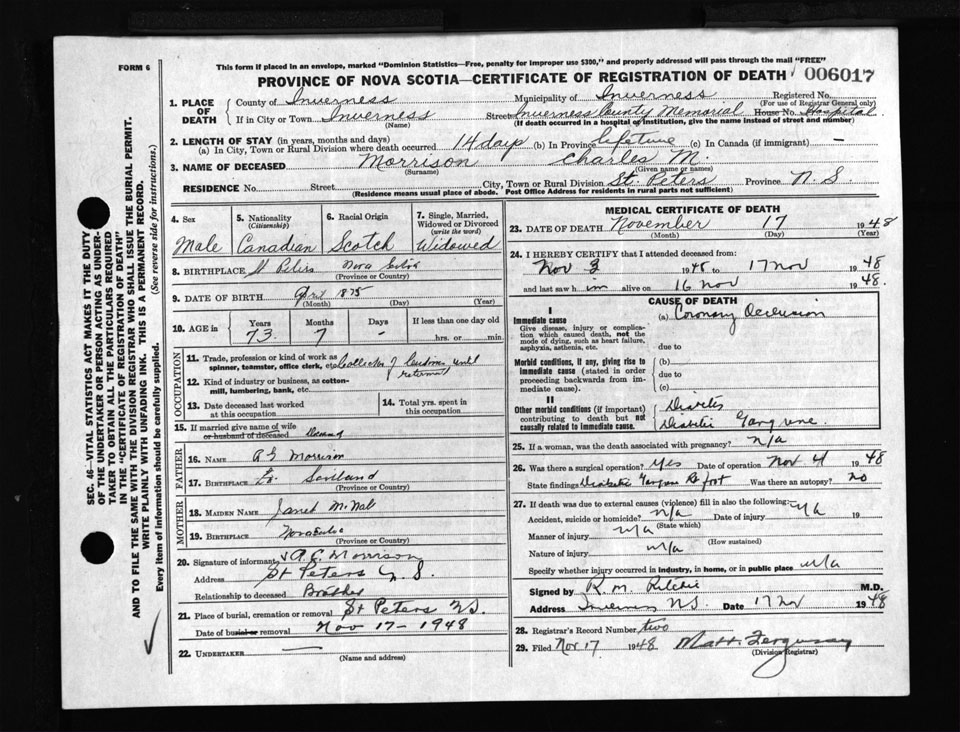 FORM 6
This form if placed in an envelope, marked "Dominion Statistics—Free, penalty for improper use $300," and properly addressed will pass through the mail "FREE"
PROVINCE OF NOVA SCOTIA—CERTIFICATE OF REGISTRATION OF DEATH 006017
1. PLACE OF DEATH
County of Inverness Municipality of Inverness Registered No.
(For use of Registrar General only)
If in City or Town Inverness Street Inverness County Memorial House No. Hospital
(Name) (If death occurred in a hospital or institution, give the name instead of street and number)
2. LENGTH OF STAY (in years, months and days)
(a) In City, Town or Rural Division where death occurred 14 days (b) In Province lifetime (c) In Canada (if immigrant) —
3. NAME OF DECEASED Morrison Charles M.
(Surname) (Given name or names)
RESIDENCE No. Street City, Town or Rural Division St. Peters Province N.S.
(Residence means usual place of abode. Post Office Address for residents in rural parts not sufficient)
4. Sex Male
5. Nationality (Citizenship) Canadian
6. Racial Origin Scotch
7. Single, Married, Widowed or Divorced (write the word) Widowed
8. BIRTHPLACE St Peters Nova Scotia
(Province or Country)
9. DATE OF BIRTH April 1875
(Month) (Day) (Year)
10. AGE in Years Months Days If less than one day old
73 7 - hrs. or min.
OCCUPATION
11. Trade, profession or kind of work as spinner, teamster, office clerk, etc. Collector of Customs until
12. Kind of industry or business, as cotton-mill, lumbering, bank, etc.
13. Date deceased last worked at this occupation
14. Total yrs. spent in this occupation
15. If married give name of wife or husband of deceased
FATHER
16. NAME Morrison
17. BIRTHPLACE Scotland
(Province or Country)
MOTHER
18. MAIDEN NAME Janet
19. BIRTHPLACE Nova Scotia
(Province or Country)
20. Signature of informant A. C. Morrison
Address St Peters N.S.
Relationship to deceased Brother
21. Place of burial, cremation or removal St Peters N.S.
Date of burial or removal Nov 17 - 1948
22. UNDERTAKER —
(Name and address)
MEDICAL CERTIFICATE OF DEATH
23. DATE OF DEATH November 17 1948
(Month) (Day) (Year)
24. I HEREBY CERTIFY that I attended deceased from:
Nov 3 1948 to 17 Nov 1948
and last saw him alive on 16 Nov 1948.
CAUSE OF DEATH
I
Immediate cause (a) Coronary Occlusion
Give disease, injury or complication which caused death, not the mode of dying, such as heart failure, asphyxia, asthenia, etc.
due to
Morbid conditions, if any, giving rise to immediate cause (stated in order proceeding backwards from immediate cause).
(b)
due to
(c)
II
Other morbid conditions (if important) contributing to death but not causally related to immediate cause.
Diabetes
Diabetic Gangrene.
25. If a woman, was the death associated with pregnancy? n/a
26. Was there a surgical operation? Yes Date of operation Nov 4 1948
State findings Diabetic Gangrene R foot Was there an autopsy? no
27. If death was due to external causes (violence) fill in also the following: n/a
Accident, suicide or homicide? n/a Date of injury 19
(State which)
Manner of injury n/a
(How sustained)
Nature of injury n/a
Specify whether injury occurred in industry, in home, or in public place n/a
Signed by R. M. Ritchie M.D.
Address Inverness N.S. Date 17 Nov 1948
28. Registrar's Record Number two
29. Filed Nov 17 1948 Matt. Ferguson
(Division Registrar)
SEC. 46—VITAL STATISTICS ACT MAKES IT THE DUTY
OF THE UNDERTAKER OR PERSON ACTING AS UNDER-
TAKER TO OBTAIN ALL THE PARTICULARS REQUIRED
IN THE "CERTIFICATE OF REGISTRATION OF DEATH"
AND TO FILE THE SAME WITH THE DIVISION REGISTRAR WHO SHALL ISSUE THE BURIAL PERMIT.
WRITE PLAINLY WITH UNFADING INK. THIS IS A PERMANENT RECORD.
Every item of information should be carefully supplied. (See reverse side for instructions.)